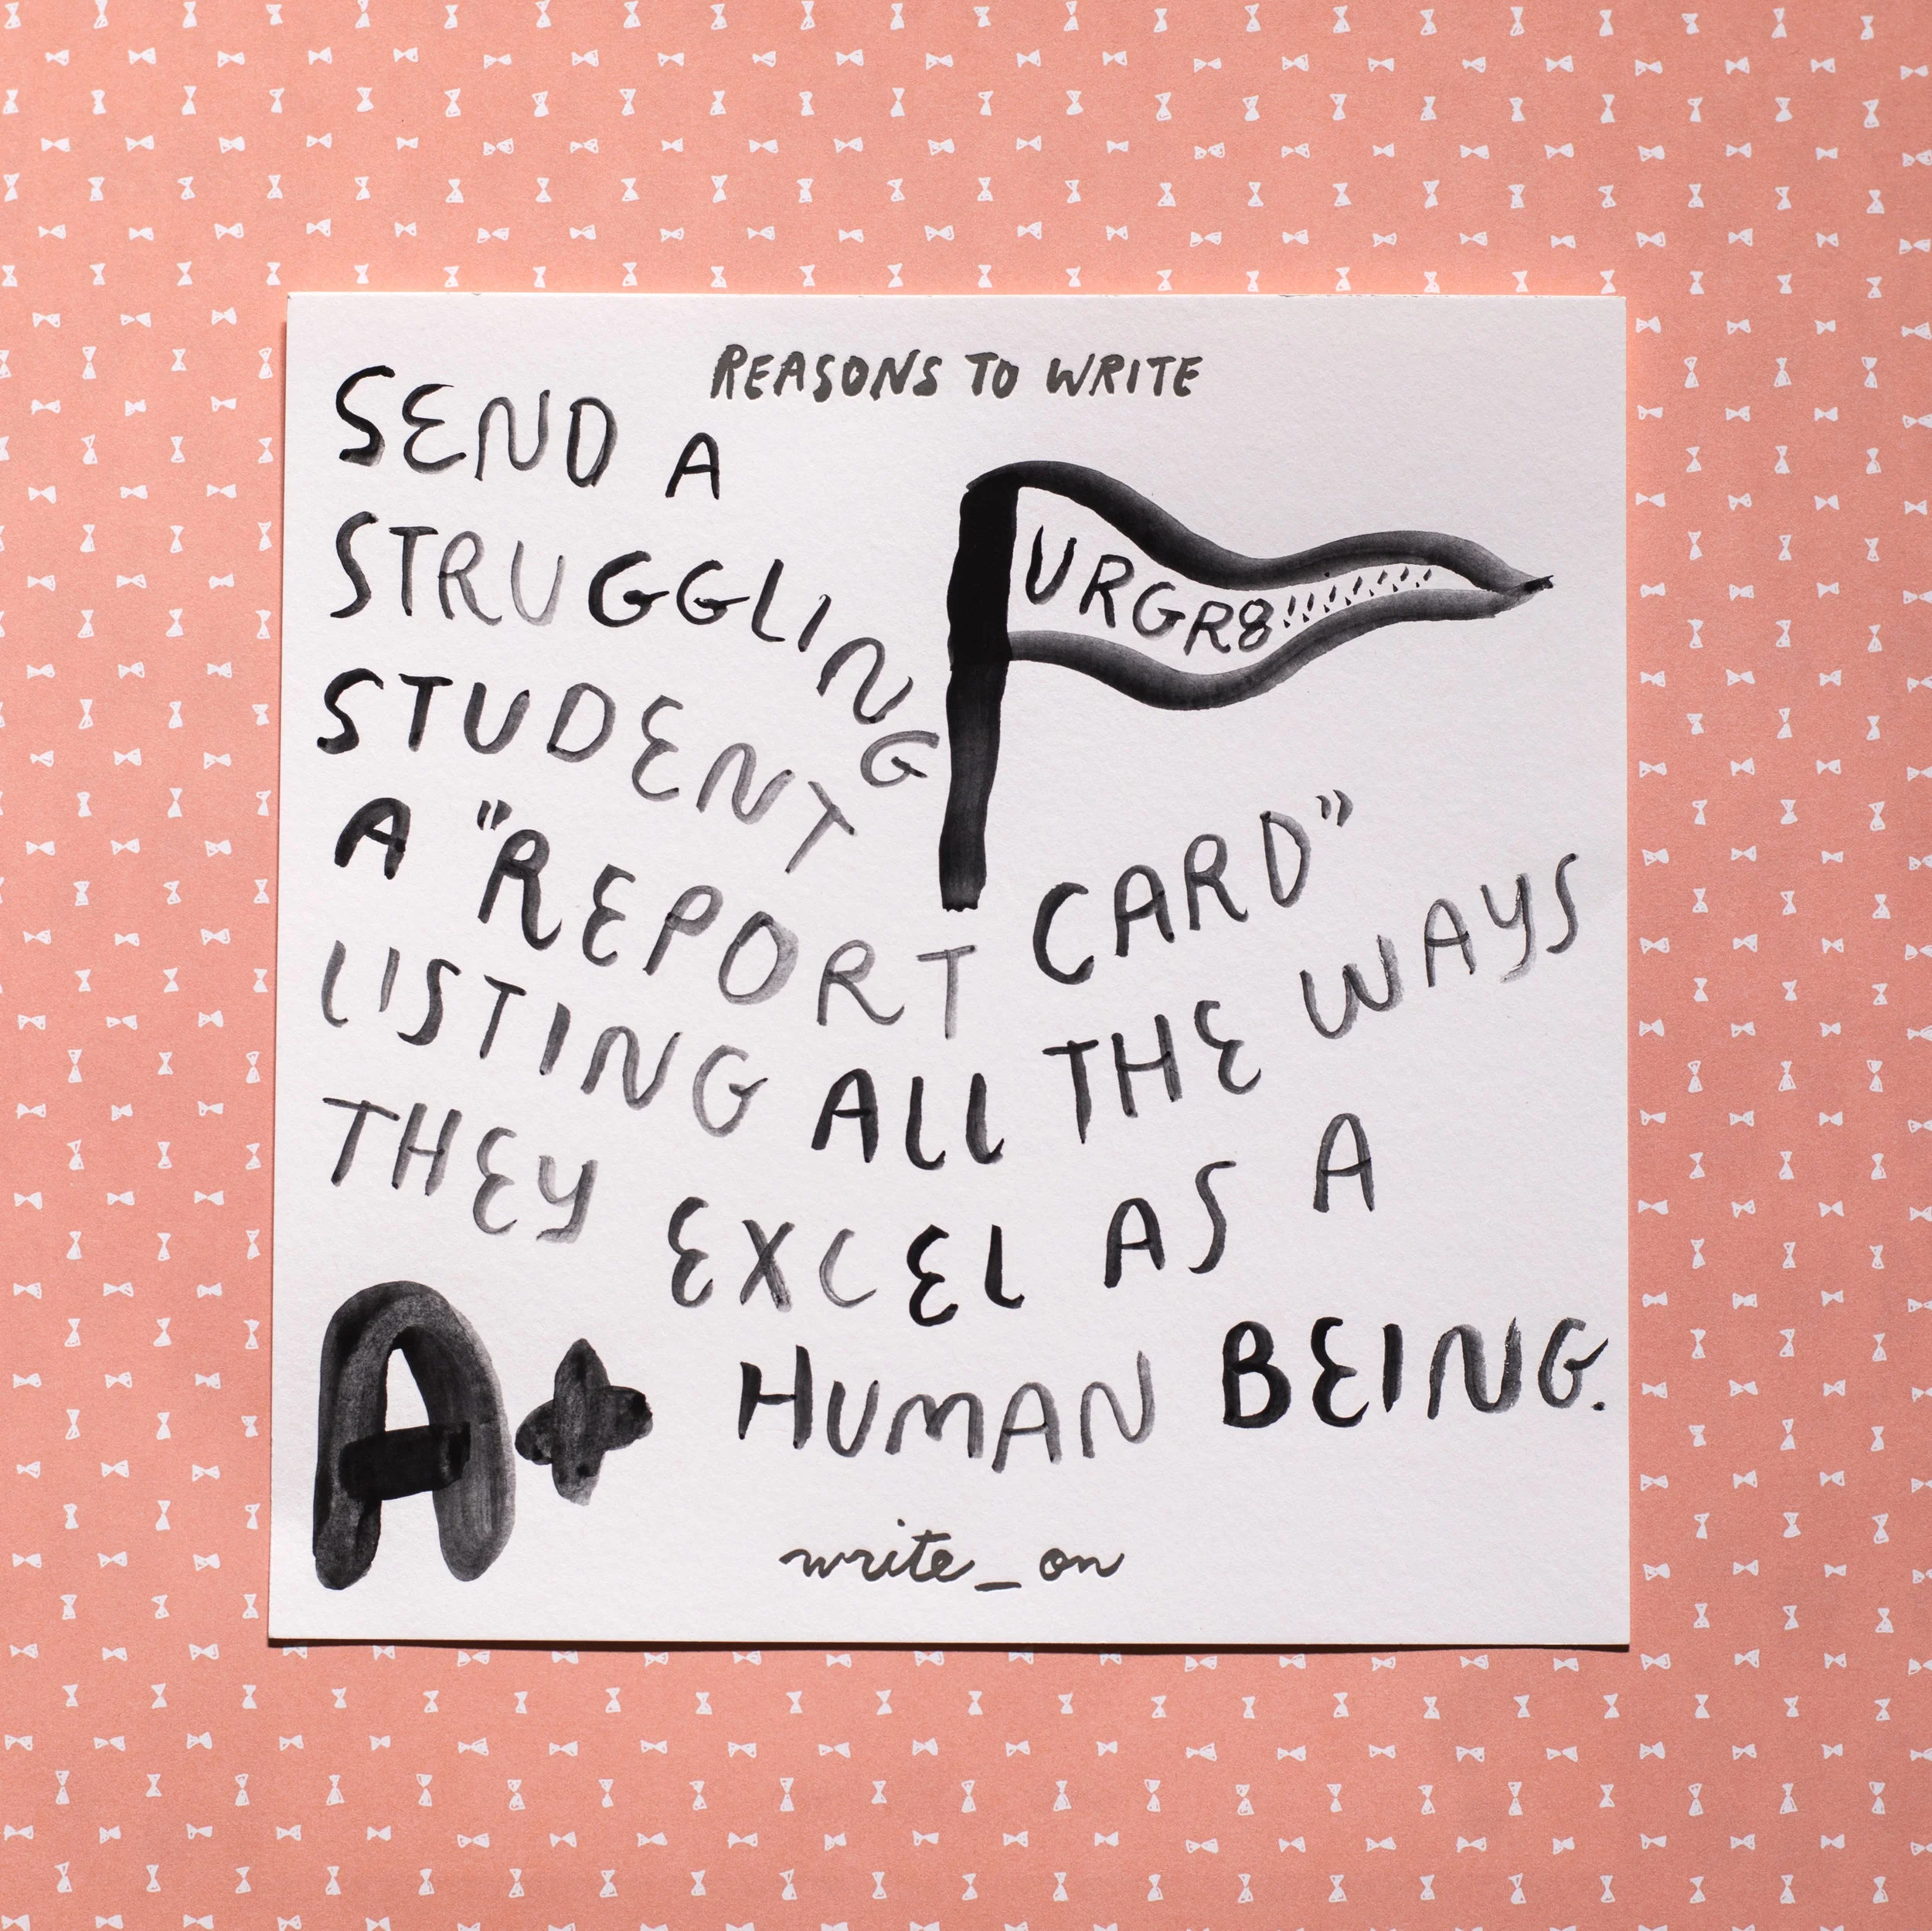 REASONS TO WRITE
SEND A
STRUGGLING
STUDENT
A "REPORT CARD"
LISTING ALL THE WAYS
THEY EXCEL AS A
HUMAN BEING.
URGR8!!!!!!!!!
A+
write_on